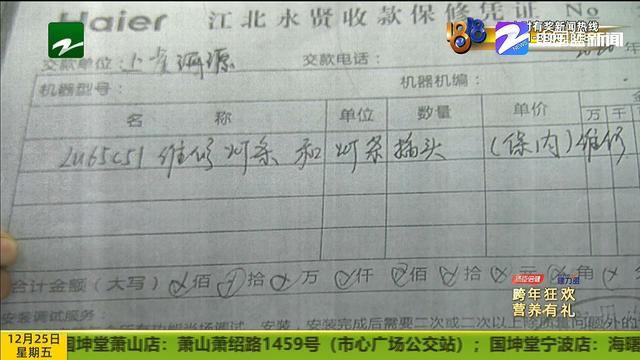 Haier 江北永贤收款保修凭证 No
有奖新闻热线
交款单位: 交款电话:
机器型号: 机器机编:
名 称 单位 数量 单价 万 千
LU65C51 维修 灯条 和 灯条 插头 (保内) 维修
合计金额(大写) 佰 拾 万 仟 佰 拾 角
安装调试服务
跨年狂欢
营养有礼
12月25日
星期五
国坤堂萧山店:萧山萧绍路1459号(市心广场公交站);国坤堂宁波店:海曙